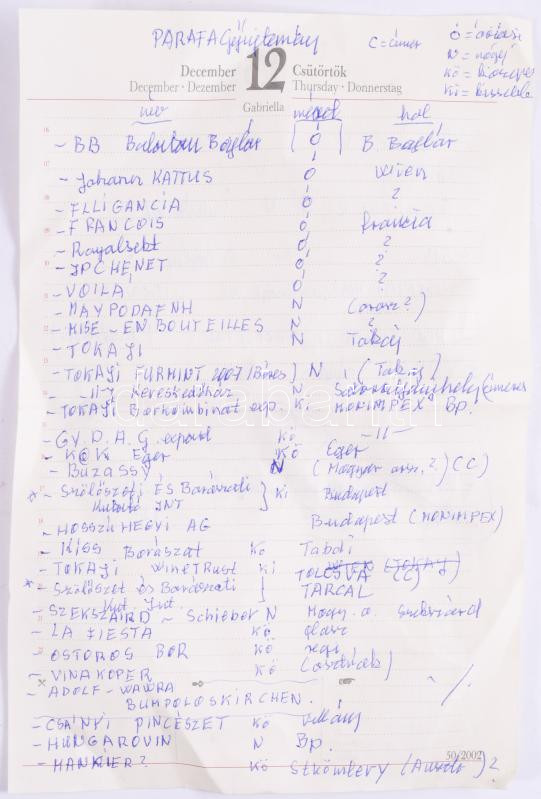 PARAFAGyűjtemény C = címer
Ó = óriási
N = nagy
Kö = közepes
Ki = kissebb
December 12 Csütörtök
December · Dezember Thursday · Donnerstag
Gabriella
név méret hol
- BB Balaton Boglár Ó B. Boglár
- Johann KATTUS Ó Wien
- ELLIGANCIA Ó ?
- FRANCOIS Ó francia
- Royalsekt Ó ?
- JPCHENET Ó ?
- VOILÁ Ó ?
- MAYPODAFNH N (orosz?)
- MISE - EN BOUTEILLES N ?
- TOKAJI N Tokaj
- TOKAJI FURMINT 2007 N (Tokaj)
- -11- Kereskedőház N Sátoraljaújhely Címeres
- TOKAJI Borkombinat exp. Ki MONIMPEX Bp.
- GY. D. A. G. export Kö -11-
- K@K Eger Kö Eger
- BUZASSY N (Magyar orsz.?) (C)
* - Szőlőszeti ÉS Borászati } Ki Budapest
Kutató INT
- HOSSZÚHEGYI AG Budapest (MONIMPEX)
- KISS Borászat Kö Tabdi
- TOKAJI WINETRUST Ki TOLCSVA (C)
* - Szőlőszet és Borászati } TARCAL
Kut. Int.
- SZEKSZÁRD - Schieber N Magy. o. Szekszárd
- LA FIESTA Kö olasz
- OSTOROS BOR Kö régi
- VINAKOPER Kö (osztrák)
- ADOLF - WAWRA
BUMPOLOSKIRCHEN. -/.
- CSÁNYI PINCÉSZET Kö Villány
- HUNGAROVIN N Bp.
50/2002
- MANKIER? Kö
darabanth